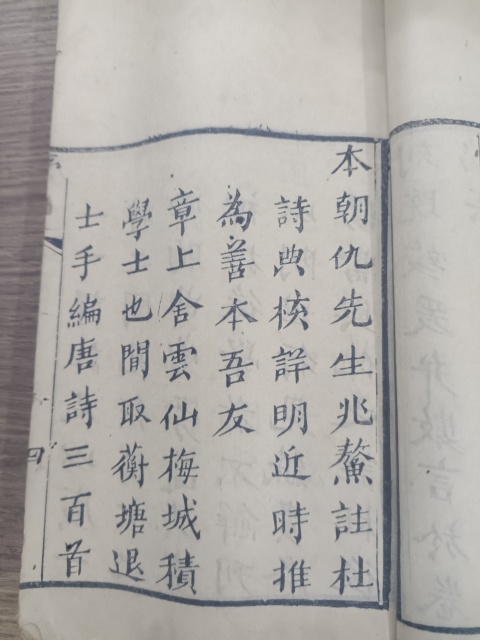 本朝仇先生兆鰲註杜
詩典核詳明近時推
為善本吾友
章上舍雲仙梅城積
學士也閒取蘅塘退
士手編唐詩三百首
四